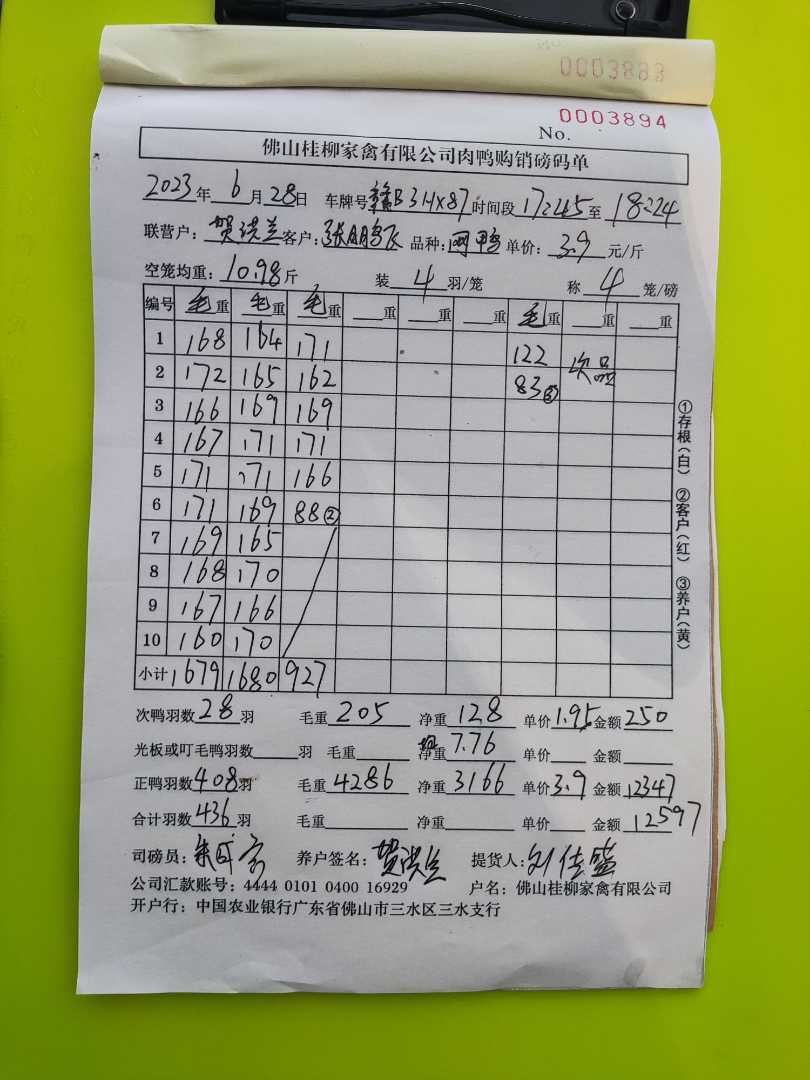 0003883
0003894
No.
佛山桂柳家禽有限公司肉鸭购销磅码单
2023年6月28日 车牌号赣B3Hx87时间段17:45至18:24
联营户：贺洪兰客户：张鹏飞 品种：网鸭 单价：3.9元/斤
空笼均重：10.98斤 装4羽/笼 称4笼/磅
编号 毛重 毛重 毛重 重 重 重 毛重 重 重
1 168 164 171 122 次品
2 172 165 162 83③
3 166 169 169
4 167 171 171
5 171 171 166
6 171 169 88②
7 169 165
8 168 170
9 167 166
10 160 170
小计 1679 1680 927
次鸭羽数28羽 毛重205 净重128 单价1.95金额250
光板或叮毛鸭羽数 羽 毛重 净重 单价 金额
均7.76
正鸭羽数408羽 毛重4286 净重3166 单价3.9 金额12347
合计羽数436羽 毛重 净重 单价 金额12597
司磅员： 养户签名：贺洪兰 提货人：刘佳盛
公司汇款账号：4444 0101 0400 16929 户名：佛山桂柳家禽有限公司
开户行：中国农业银行广东省佛山市三水区三水支行
①存根（白） ②客户（红） ③养户（黄）